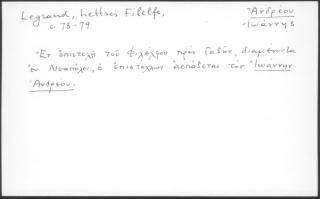 Legrand, Lettres Filelfe,
Ἀνδρέου
c. 78-79
Ἰωάννης
Ἐν ἐπιστολῇ τοῦ Φιλέλφου πρὸς Γαζῆν, διαμένοντα
ἐν Νεαπόλει, ὁ ἐπιστέλλων ἀσπάζεται τὸν Ἰωάννην
Ἀνδρέου.